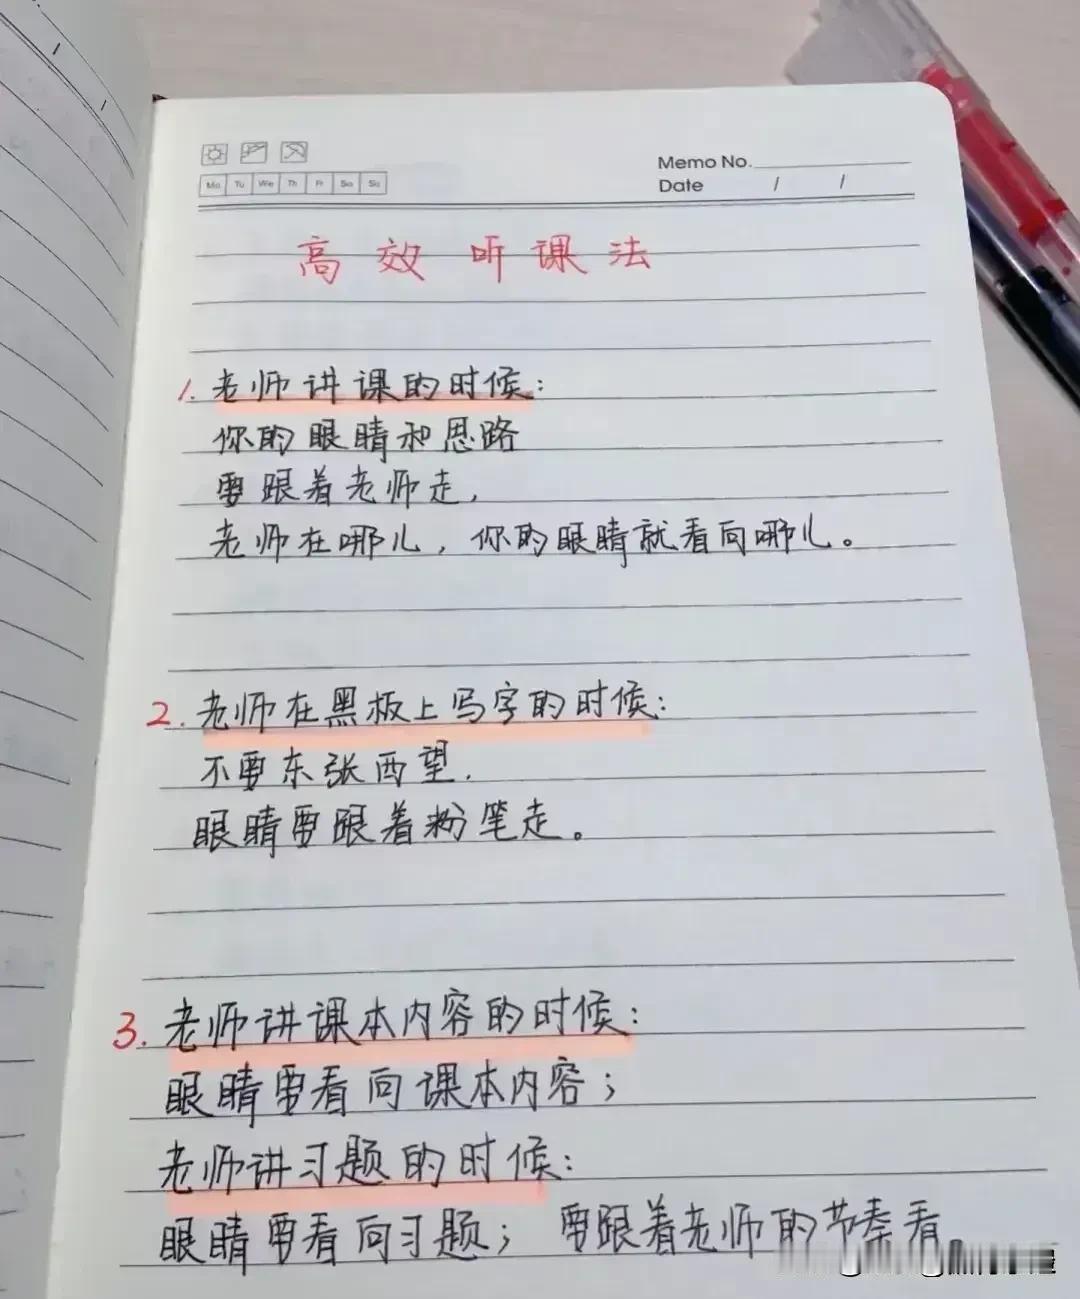 Mo Tu We Th Fr Sa Su
Memo No.
Date / /
高效听课法
1. 老师讲课的时候:
你的眼睛和思路
要跟着老师走,
老师在哪儿,你的眼睛就看向哪儿。
2. 老师在黑板上写字的时候:
不要东张西望.
眼睛要跟着粉笔走。
3. 老师讲课本内容的时候:
眼睛要看向课本内容;
老师讲习题的时候:
眼睛要看向习题; 要跟着老师的节奏看